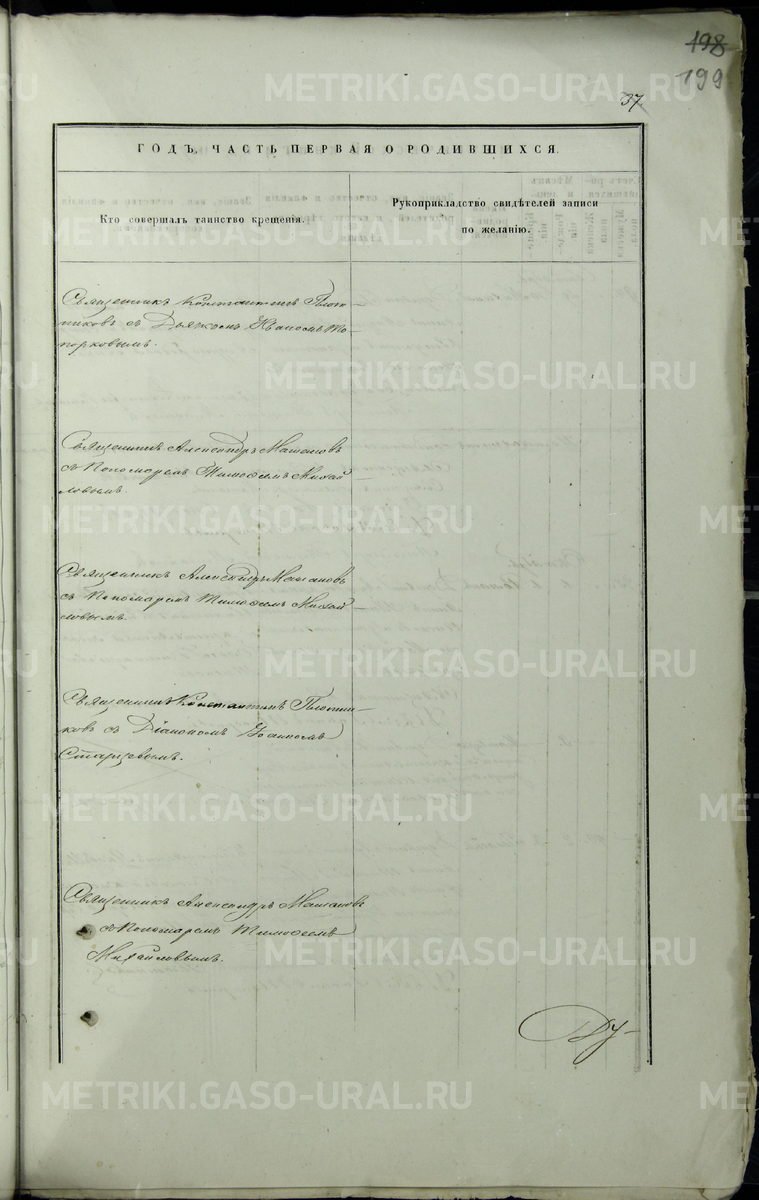 198
199
37.
ГОДЪ, ЧАСТЬ ПЕРВАЯ О РОДИВШИХСЯ.
Кто совершалъ таинство крещенія.
Рукоприкладство свидѣтелей записи
по желанію.
Священникъ Константинъ Плот–
никовъ съ Дьячкомъ Иваномъ То–
порковымъ.
Священникъ Александръ Машановъ
съ Пономаремъ Тимофеемъ Михай–
ловымъ.
Священникъ Александръ Машановъ
съ Пономаремъ Тимофеемъ Михай
ловымъ.
Священникъ Константинъ Плотни–
ковъ съ Діакономъ Іоанномъ
Старцевымъ.
Священникъ Александръ Машановъ
съ Пономаремъ Тимофеемъ
Михайловымъ.
METRIKI.GASO-URAL.RU